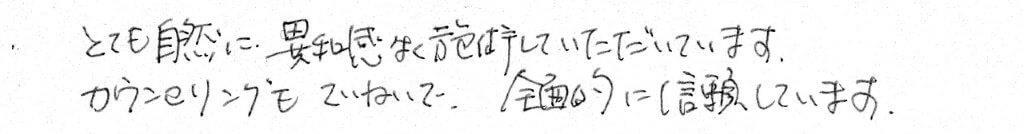 とても自然に、異和感なく施術していただいています.
カウンセリングもていねいで、全面的に信頼しています.